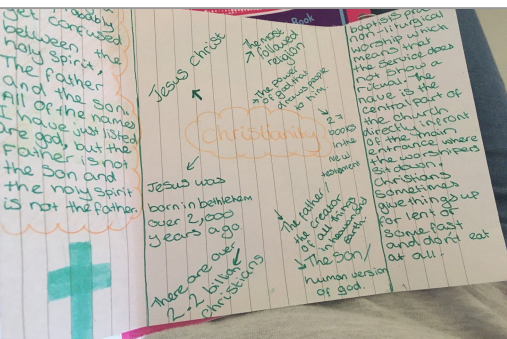 get probably
confused
between the
holy spirit,
The father
and the son.
All of the names
I have just listed
are god, but the
Father is not
the son and
the holy spirit
is not the father.
Jesus Christ
The most
followed
religion
Book
The power
of god that
draws people
to him.
Christianity
27
books
in the
new
testament
Jesus was
born in bethleham
over 2,000
years ago
There are over
2.2 billion
christians
The father/
the creator
of all things
in heaven and
earth.
The Son/
human version
of god.
baptists
non-liturgical
worship which
means that
the service does
not show a
ritual. The
nave is the
central part of
the church
directly infront
of the main
entrance where
the worshipers
sit down.
Christians
sometimes
give things up
for lent or
some fast
and don't eat
at all.